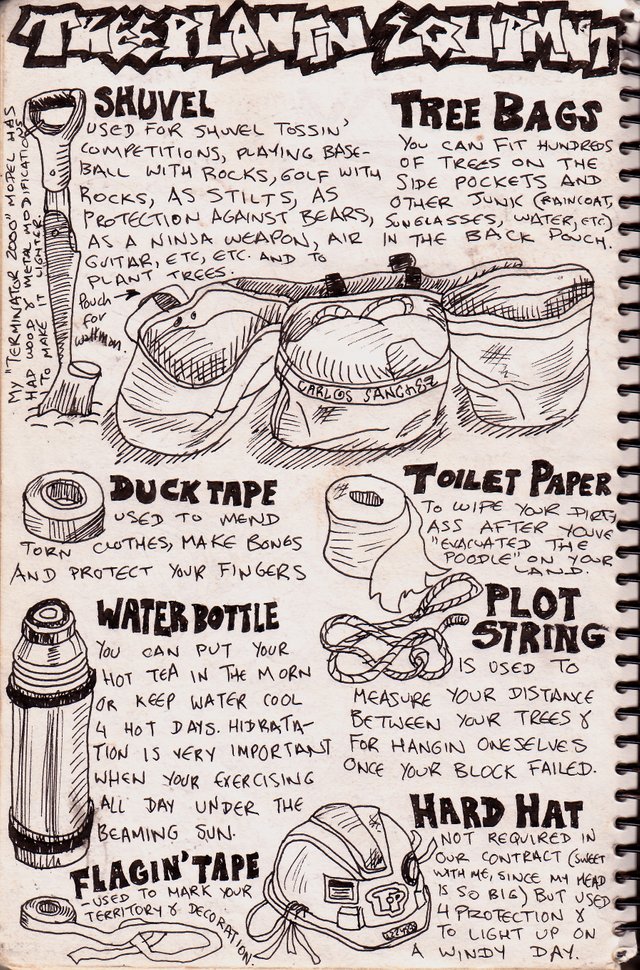 TREEPLANTIN EQUIPMNT
SHUVEL
USED FOR SHUVEL TOSSIN'
COMPETITIONS, PLAYING BASE-
BALL WITH ROCKS, GOLF WITH
ROCKS, AS STILTS, AS
PROTECTION AGAINST BEARS,
AS A NINJA WEAPON, AIR
GUITAR, ETC, ETC. AND TO
PLANT TREES.
MY "TERMINATOR 2000" MODEL HAS
HAD WOOD & METAL MODIFICATIONS
TO MAKE IT LIGHTER.
TREE BAGS
YOU CAN FIT HUNDREDS
OF TREES ON THE
SIDE POCKETS AND
OTHER JUNK (RAINCOAT,
SUNGLASSES, WATER, ETC)
IN THE BACK POUCH.
Pouch
for
CARLOS SANCHEZ
DUCK TAPE
USED TO MEND
TORN CLOTHES, MAKE BONGS
AND PROTECT YOUR FINGERS
TOILET PAPER
TO WIPE YOUR DIRTY
ASS AFTER YOU'VE
"EVACUATED THE
POODLE" ON YOUR
LAND.
WATER BOTTLE
YOU CAN PUT YOUR
HOT TEA IN THE MORN
OR KEEP WATER COOL
4 HOT DAYS. HIDRATA-
TION IS VERY IMPORTANT
WHEN YOUR EXERCISING
ALL DAY UNDER THE
BEAMING SUN.
PLOT
STRING
IS USED TO
MEASURE YOUR DISTANCE
BETWEEN YOUR TREES &
FOR HANGIN ONESELVES
ONCE YOUR BLOCK FAILED.
FLAGIN' TAPE
-USED TO MARK YOUR
TERRITORY & DECORATION.
HARD HAT
NOT REQUIRED IN
OUR CONTRACT (SWEET
WITH ME, SINCE MY HEAD
IS SO BIG) BUT USED
4 PROTECTION &
TO LIGHT UP ON
A WINDY DAY.